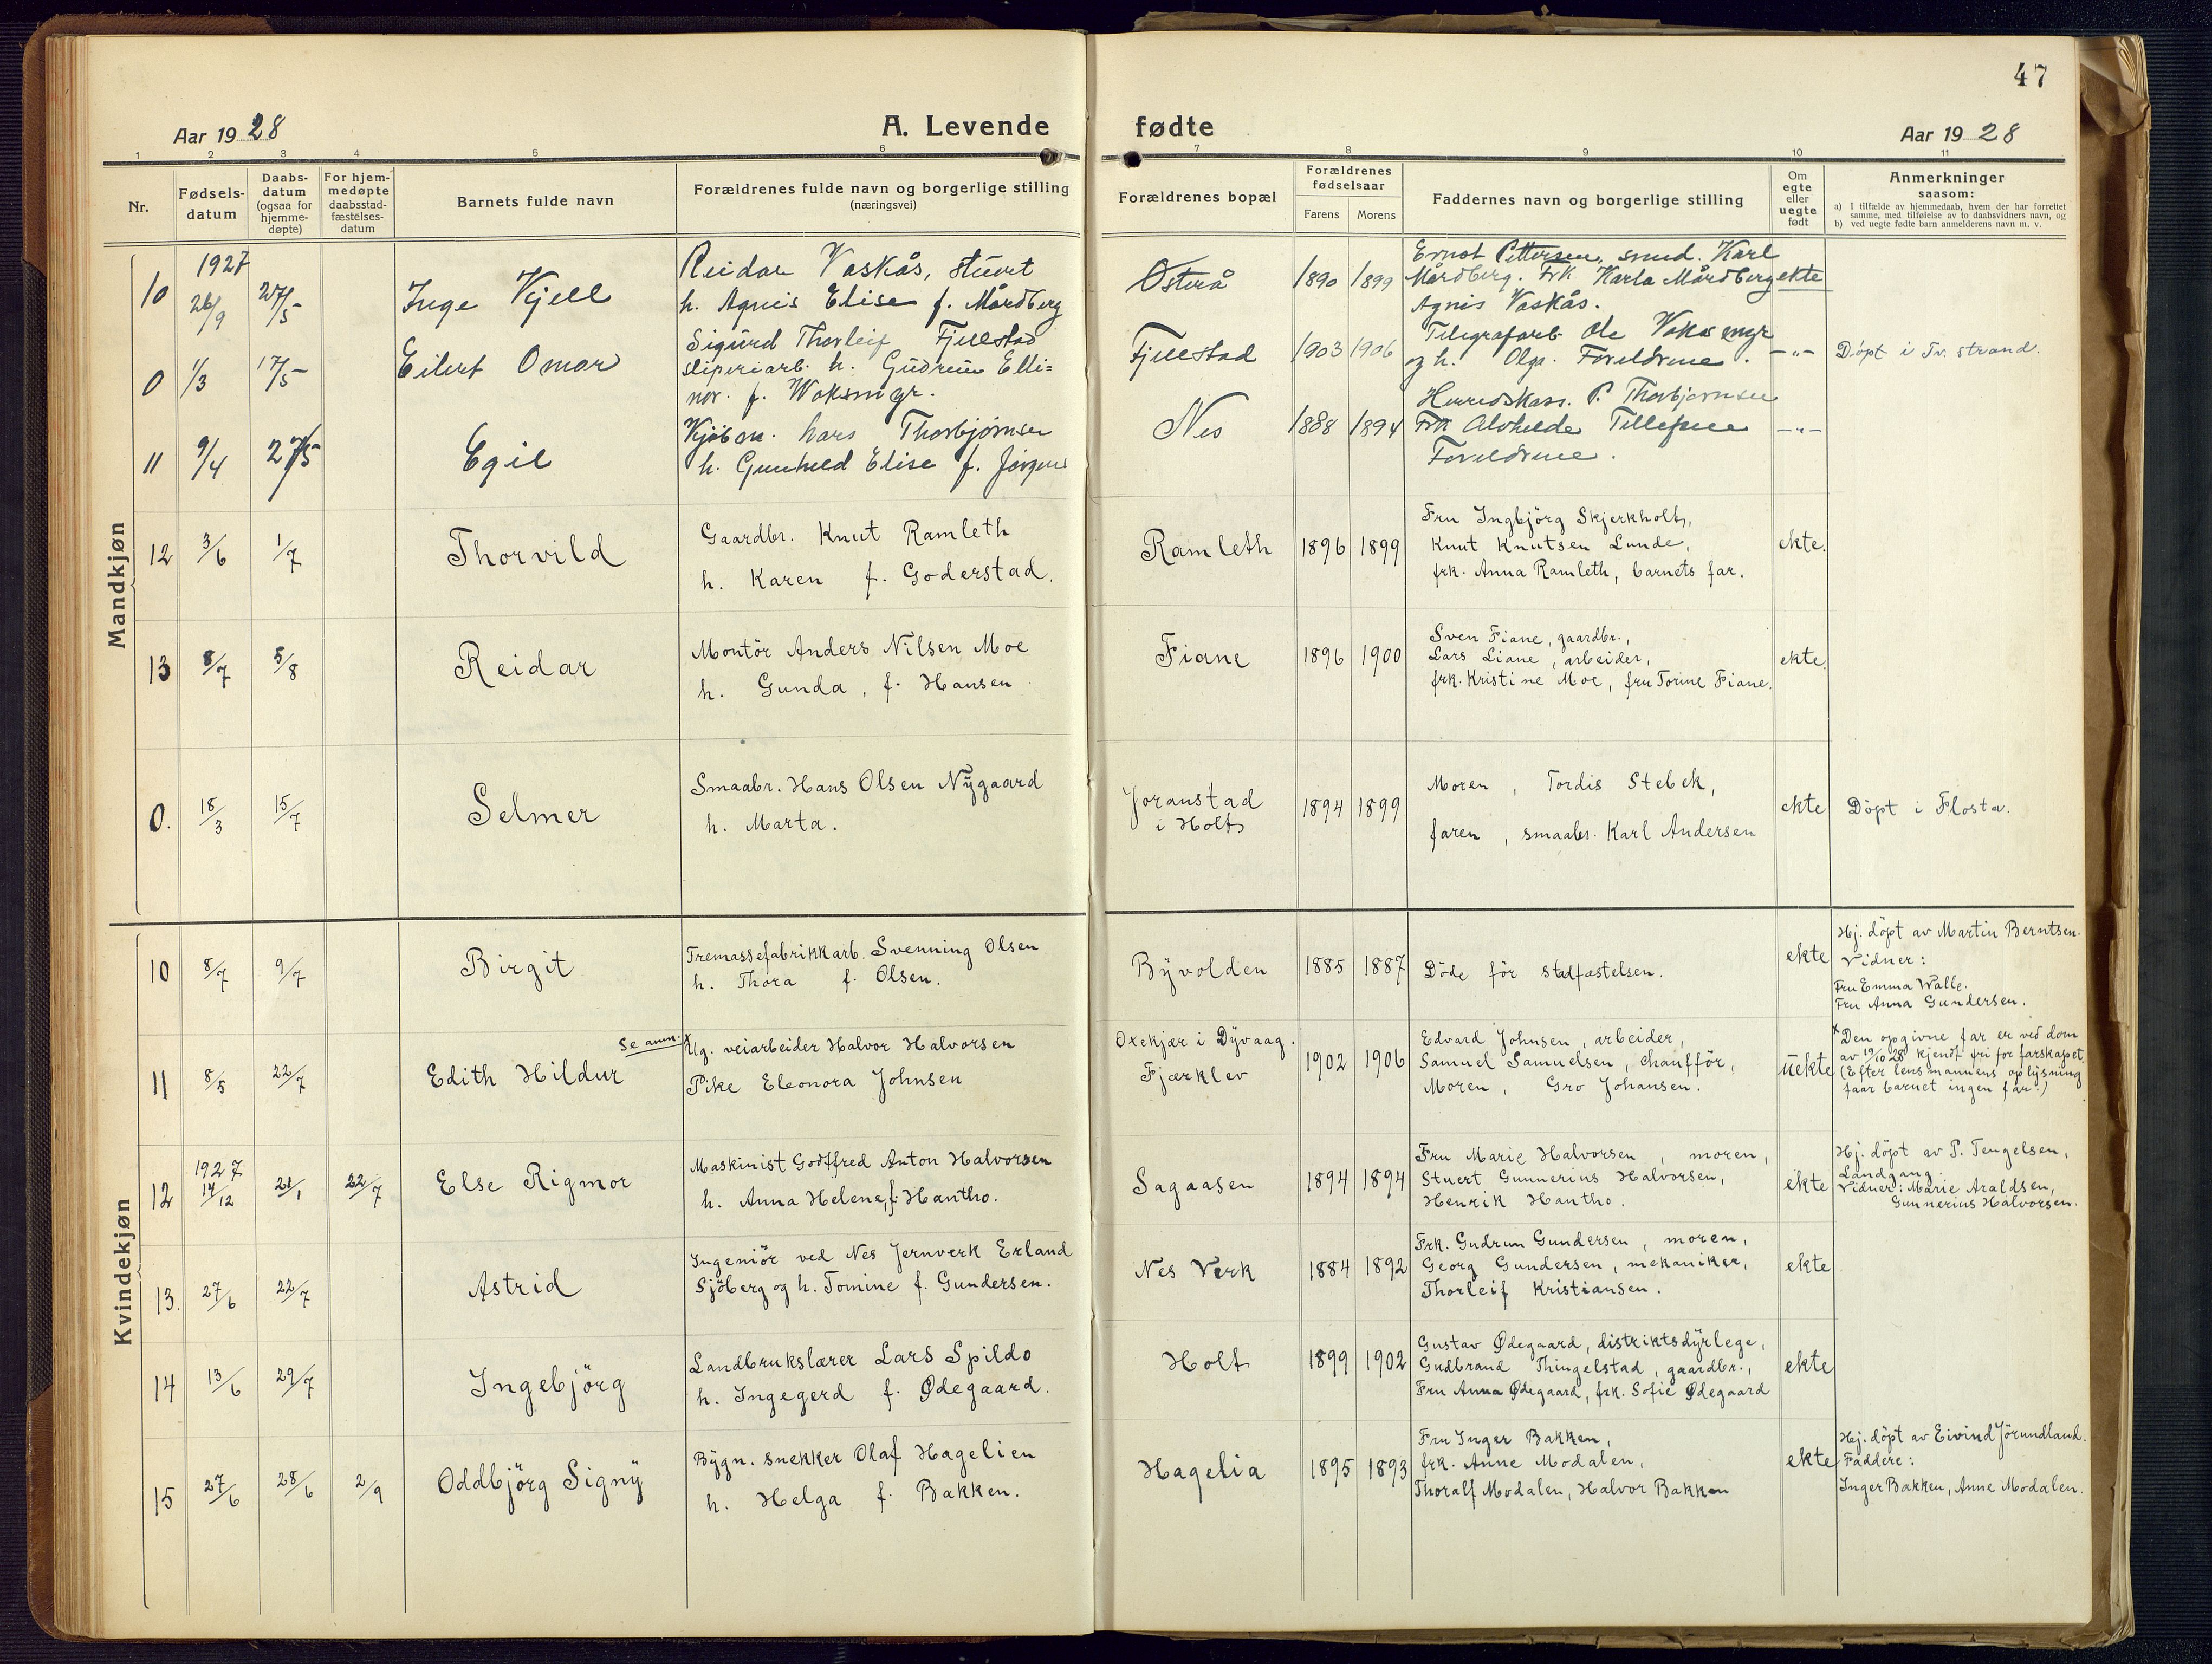 47
Aar 1928
A. Levende fødte
Aar 1928
1 2 3 4 5 6 7 8 9 10 11
Nr.
Fødsels-
datum
Daabs-
datum
(ogsaa for
hjemme-
døpte)
For hjem-
medøpte
daabsstad-
fæstelses-
datum
Barnets fulde navn
Forældrenes fulde navn og borgerlige stilling
(næringsvei)
Forældrenes bopæl
Forældrenes
fødselsaar
Farens Morens
Faddernes navn og borgerlige stilling
Om
egte
eller
uegte
født
Anmerkninger
saasom:
a) I tilfælde av hjemmedaab, hvem der har forrettet
samme, med tilføielse av to daabsvidners navn, og
b) ved uegte fødte barn anmelderens navn m. v.
Mandkjøn
10
1927
26/9
27/5
Inge Kjell
Reidar Vaskås, stuert
h. Agnes Elise f. Mårdberg
Østerå
1890 1899
Ernst Pettersen, smed. Karl
Mårdberg. Frk Karla Mårdberg
Agnis Vaskås.
ekte
0
1/3
17/5
Eilert Omar
Sigurd Thorleif Fjellestad
sliperiarb. h. Gudrun Elli=
nor. f. Woksmyr.
Fjellestad
1903 1906
Telegrafarb Ole Voksmyr
og h. Olga. Foreldrene.
-"-
Døpt i Tv. strand.
11
9/4
27/5
Egil
Kjøbm. Lars Thorbjørnsen
h. Gunhild Elise f. Jørgens
Nes
1888 1894
Herredskass. P. Thorbjørnsen
Frk Alvhilde Tellefsen
Foreldrene.
-"-
12
3/6
1/7
Thorvild
Gaardbr. Knut Ramleth
h. Karen f. Goderstad.
Ramleth
1896 1899
Fru Ingbjörg Skjerkholt,
Knut Knutsen Lunde,
frk. Anna Ramleth, barnets far.
ekte.
13
8/7
5/8
Reidar
Montör Anders Nilsen Moe
h. Gunda, f. Hansen.
Fiane
1896 1900
Sven Fiane, gaardbr.,
Lars Liane, arbeider,
frk. Kristine Moe, fru Torine Fiane.
ekte.
0.
18/3
15/7
Selmer
Smaabr. Hans Olsen Nÿgaard
h. Marta.
Joranstad
i Holt
1894 1899
Moren, Tordis Stebek,
faren, smaabr. Karl Andersen
ekte
Döpt i Flosta.
Kvindekjøn
10
8/7
9/7
Birgit
Tremassefabrikkarb. Svenning Olsen
h. Thora f. Olsen.
Bÿvolden
1885 1887
Döde för stadfæstelsen.
ekte
Hj. döpt av Martin Berntsen.
Vidner:
Fru Emma Walle.
Fru Anna Gundersen.
11
8/5
22/7
Edith Hildur
Se anm. x
Ug. veiarbeider Halvor Halvorsen
Pike Eleonora Johnsen
Oxekjær i Dÿvaag.
Fjærklev
1902 1906
Edvard Johnsen, arbeider,
Samuel Samuelsen, chaufför,
Moren, Gro Johansen.
uekte
x Den opgivne far er ved dom
av 19/10 28 kjendt fri for farskapet.
(Efter lensmannens oplÿsning
faar barnet ingen far.)
12
1927
14/12
21/1
22/7
Else Rigmor
Maskinist Godtfred Anton Halvorsen
h. Anna Helene, f. Hantho.
Sagaasen
1894 1894
Fru Marie Halvorsen, moren,
Stuert Gunnerius Halvorsen,
Henrik Hantho.
ekte
Hj. döpt av P. Tengelsen,
Landgang.
Vidner: Marie Araldsen,
Gunnerius Halvorsen.
13.
27/6
22/7
Astrid
Ingeniör ved Nes Jernverk Erland
Sjöberg og h. Tomine f. Gundersen.
Nes Verk
1884 1892
Frk. Gudrun Gundersen, moren,
Georg Gundersen, mekaniker,
Thorleif Kristiansen.
ekte
14
13/6
29/7
Ingebjörg
Landbrukslærer Lars Spildo
h. Ingegerd f. Ødegaard.
Holt
1899 1902
Gustav Ødegaard, distriktsdÿrlege,
Gudbrand Thingelstad, gaardbr.,
Fru Anna Ødegaard, frk. Sofie Ødegaard
ekte
15
27/6
28/6
2/9
Oddbjörg Signÿ
Bÿgn. snekker Olaf Hagelien
h. Helga f. Bakken.
Hagelia
1895 1893
Fru Inger Bakken,
frk. Anne Modalen,
Thoralf Modalen, Halvor Bakken
ekte
Hj. döpt av Eivind Jörundland.
Faddere:
Inger Bakken, Anne Modalen.